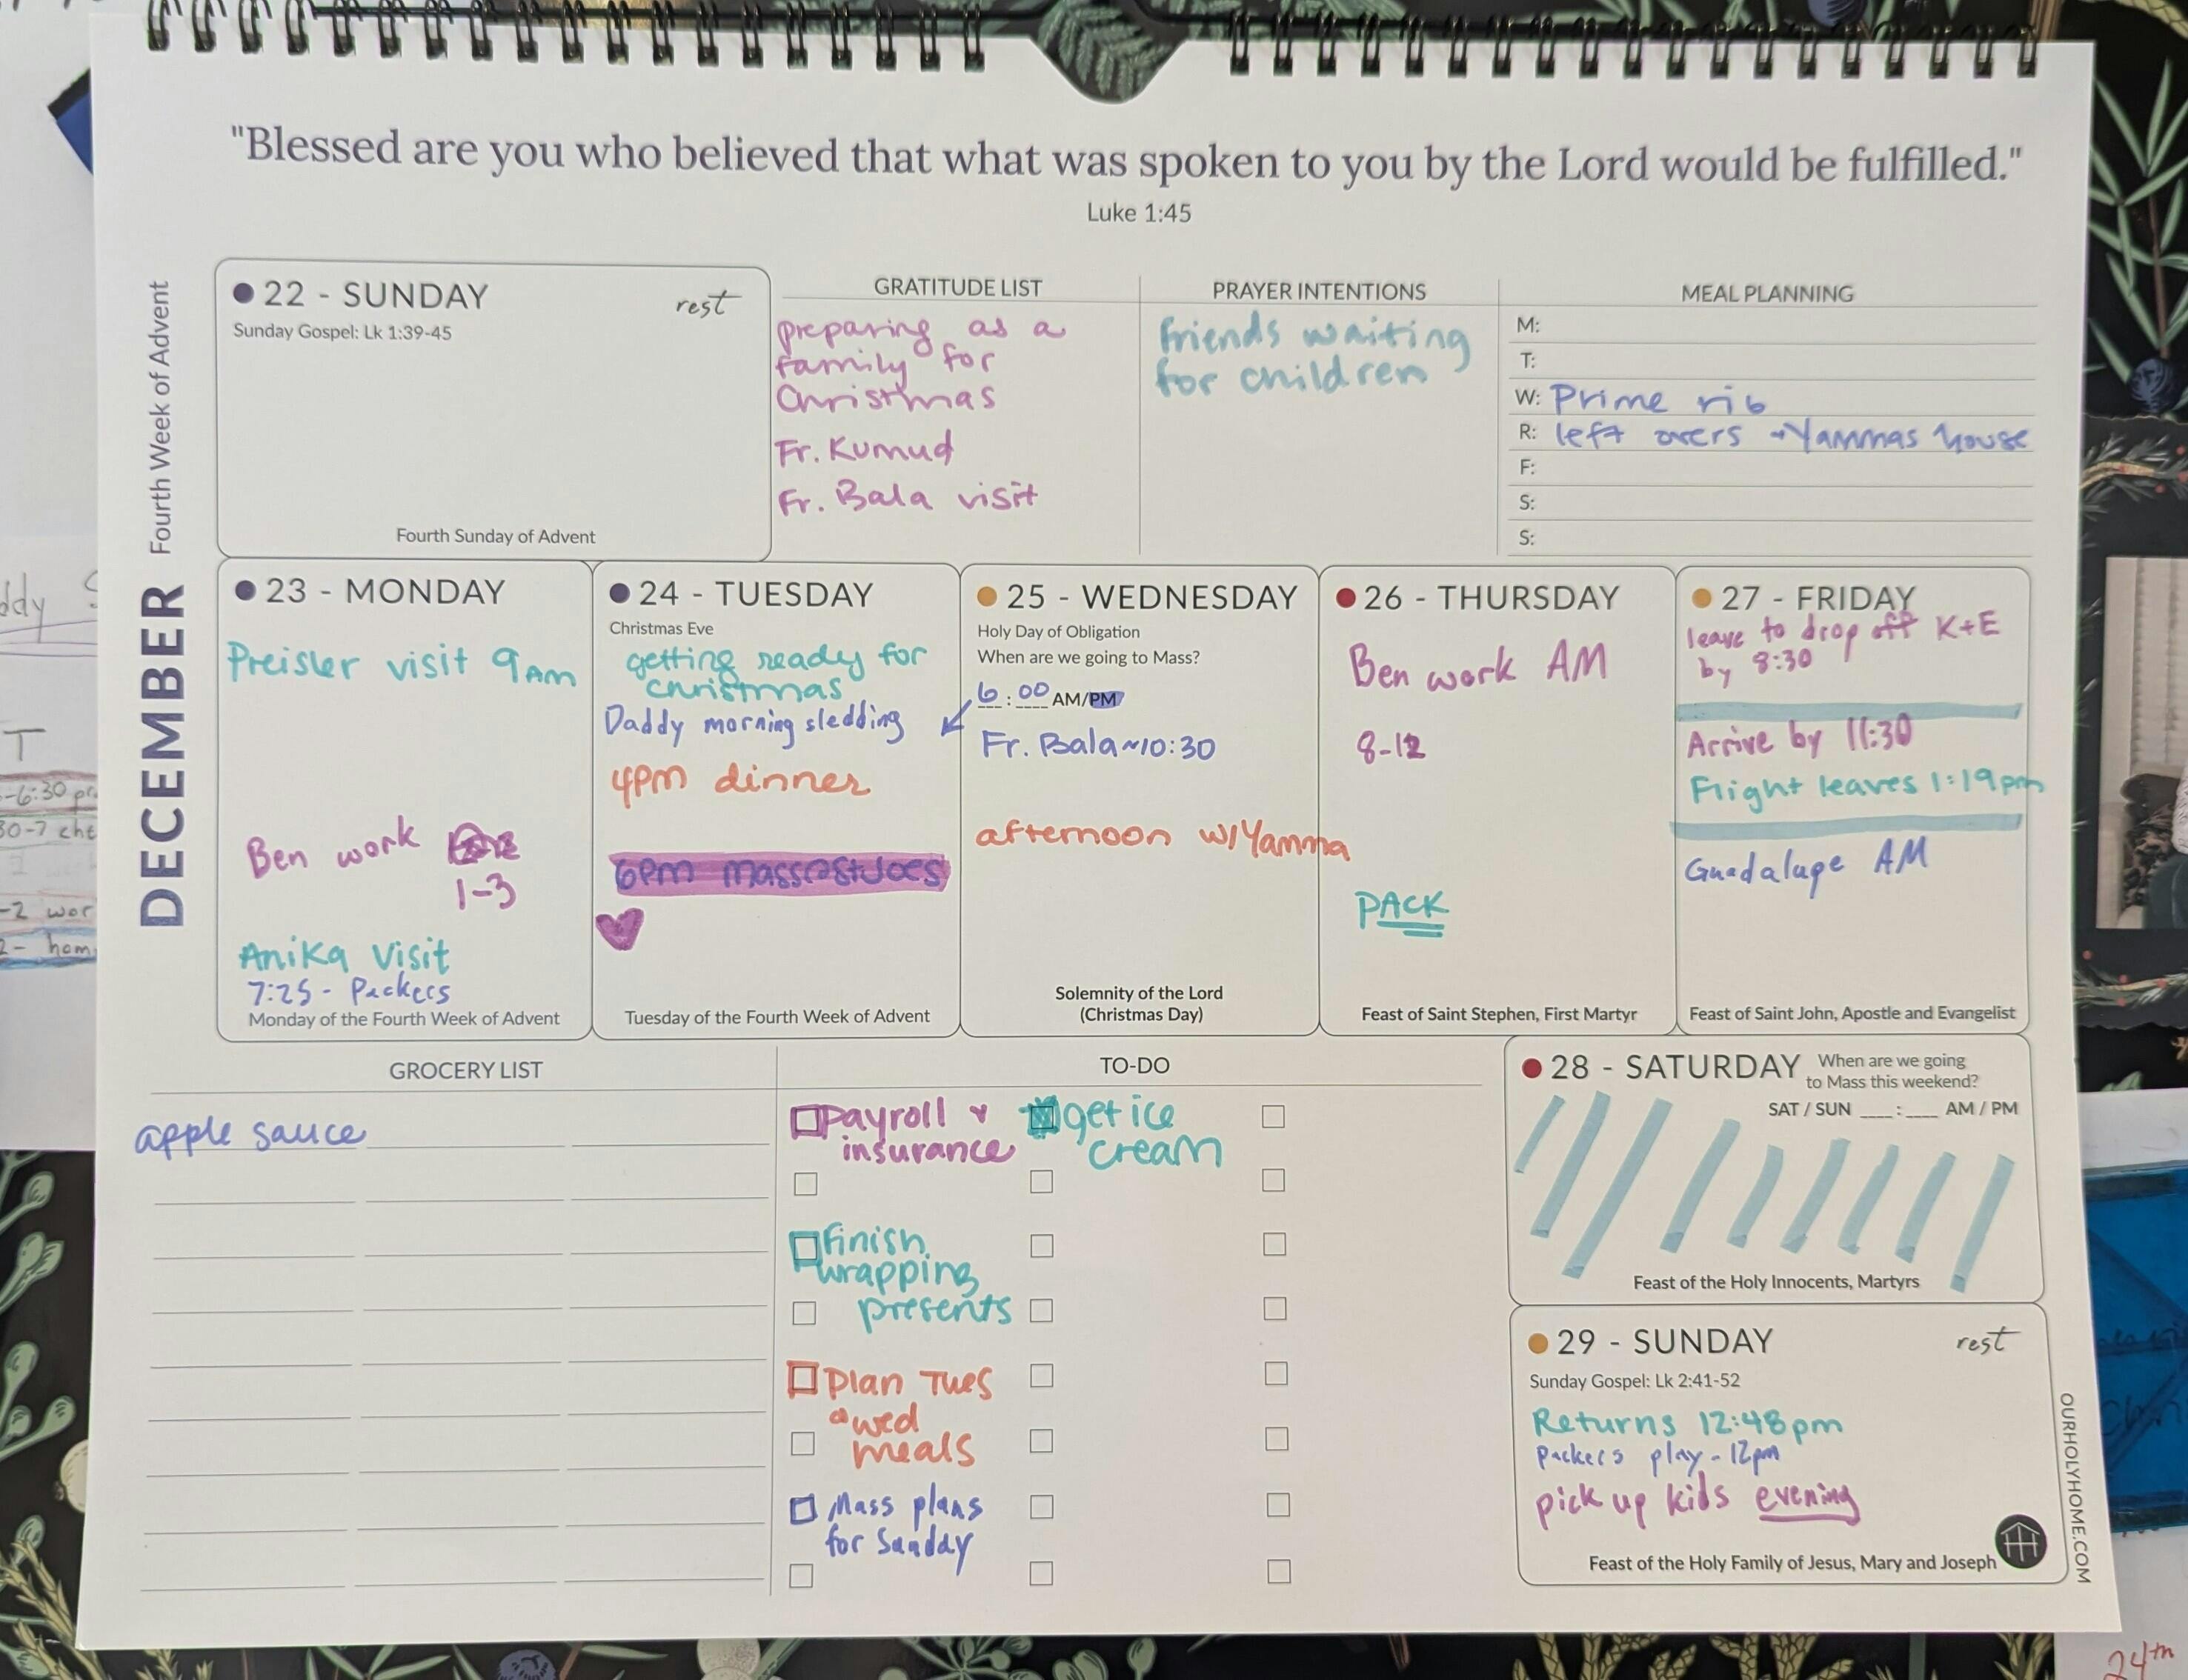 "Blessed are you who believed that what was spoken to you by the Lord would be fulfilled."
Luke 1:45
DECEMBER Fourth Week of Advent
22 - SUNDAY
rest
Sunday Gospel: Lk 1:39-45
Fourth Sunday of Advent
GRATITUDE LIST
preparing as a
family for
Christmas
Fr. Kumud
Fr. Bala visit
PRAYER INTENTIONS
friends waiting
for children
MEAL PLANNING
M:
T:
W: Prime rib
R: left overs → Yammas house
F:
S:
S:
23 - MONDAY
Preisler visit 9AM
Ben work
1-3
Anika visit
7:25 - Packers
Monday of the Fourth Week of Advent
24 - TUESDAY
Christmas Eve
getting ready for
christmas
Daddy morning sledding
4pm dinner
6pm mass@StJoes
Tuesday of the Fourth Week of Advent
25 - WEDNESDAY
Holy Day of Obligation
When are we going to Mass?
6:00 AM/PM
Fr. Bala ~10:30
afternoon w/Yamma
Solemnity of the Lord
(Christmas Day)
26 - THURSDAY
Ben work AM
8-12
PACK
Feast of Saint Stephen, First Martyr
27 - FRIDAY
leave to drop off K+E
by 8:30
Arrive by 11:30
Flight leaves 1:19pm
Guadalupe AM
Feast of Saint John, Apostle and Evangelist
GROCERY LIST
apple sauce
TO-DO
Payroll &
insurance
finish
wrapping
presents
Plan Tues
& wed
meals
Mass plans
for Sunday
get ice
cream
28 - SATURDAY
When are we going
to Mass this weekend?
SAT / SUN ____:____ AM / PM
Feast of the Holy Innocents, Martyrs
29 - SUNDAY
rest
Sunday Gospel: Lk 2:41-52
Returns 12:48pm
Packers play - 12pm
pick up kids evening
Feast of the Holy Family of Jesus, Mary and Joseph
OURHOLYHOME.COM
ddy
T
-6:30
30-7
-2 wor
2- hom
24th